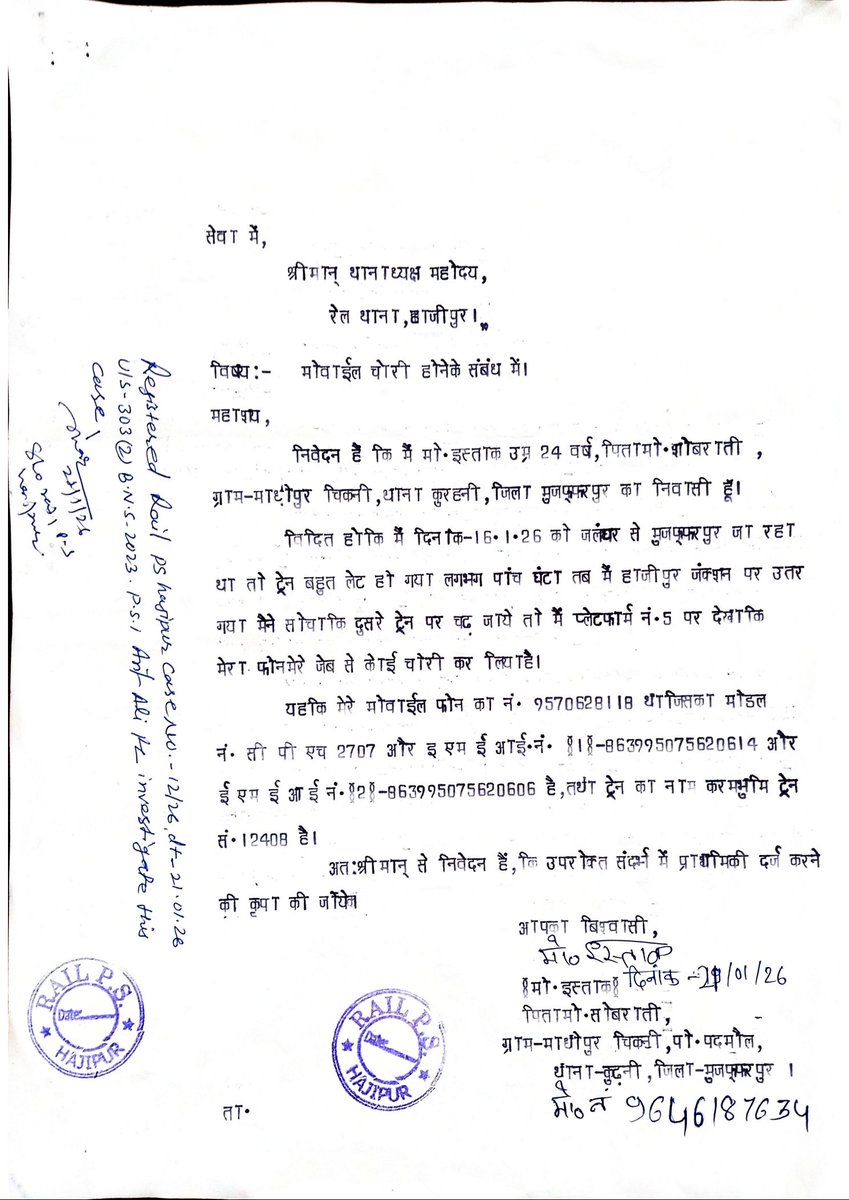 सेवा में,
श्रीमान् थानाध्यक्ष महोदय,
रेल थाना,हाजीपुर।
विषय:- मोवाईल चोरी होनेके संबंध में।
महाशय,
निवेदन है कि मैं मो॰इस्ताक उम्र 24 वर्ष,पितामो॰शोबराती ,
ग्राम-माधोपुर चिकनी,थाना कुरहनी,जिला मुजफ्फरपुर का निवासी हूँ।
विदित होकि मैं दिनांक-16॰1॰26 को जलंधर से मुजफ्फरपुर जा रहा
था तो ट्रेन बहुत लेट हो गया लगभग पांच घंटा तब मैं हाजीपुर जंक्शन पर उतर
गया मैने सोचाकि दुसरे ट्रेन पर चढ़ जाये तो मैं प्लेटफार्म नं॰5 पर देखाकि
मेरा फोनमेरे जेब से कोई चोरी कर लियाहै।
यहकि मेरे मोवाईल फोन का नं॰ 9570628118 थाजिसका मोडल
नं॰ सी पी एच 2707 और इ एम ई आई॰नं॰ (1)-863995075620614 और
ई एम ई आई नं॰(2)-863995075620606 है,तथा ट्रेन का नाम करमभुमि ट्रेन
सं॰12408 है।
अत:श्रीमान् से निवेदन हैं,कि उपरोक्त संदर्भ में प्राथमिकी दर्ज करने
की कृपा की जॉये
आपका बिश्वासी,
मो० इस्ताक
(मो॰इस्ताक) दिनांक -21/01/26
पितामो॰सोबराती,
ग्राम-माधोपुर चिकनी,पो॰पदमौल,
थाना-कुढ़नी,जिला-मुजफ्फरपुर ।
मो० नं 9646187634
ता॰
Registered Rail PS hajipur case No.-12/26, dt-21.01.26
U/S-303(2) B.N.S-2023. P.S.I Arif Ali to investigate this
case.
21/1/26
SHO rail P.S
hajipur
RAIL P.S.
Date
HAJIPUR
RAIL P.S.
Date
HAJIPUR